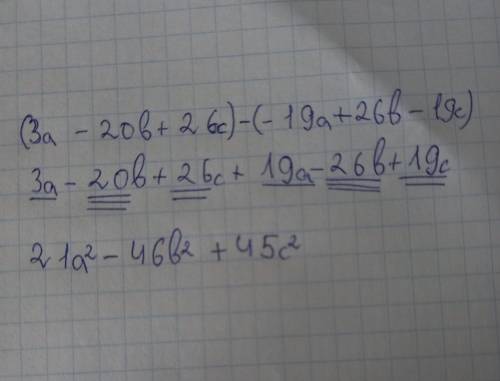 (3a - 20в + 26c) - (-19a + 26в - 19c)
3a - 20в + 26c + 19a - 26в + 19c
21a² - 46в² + 45c²